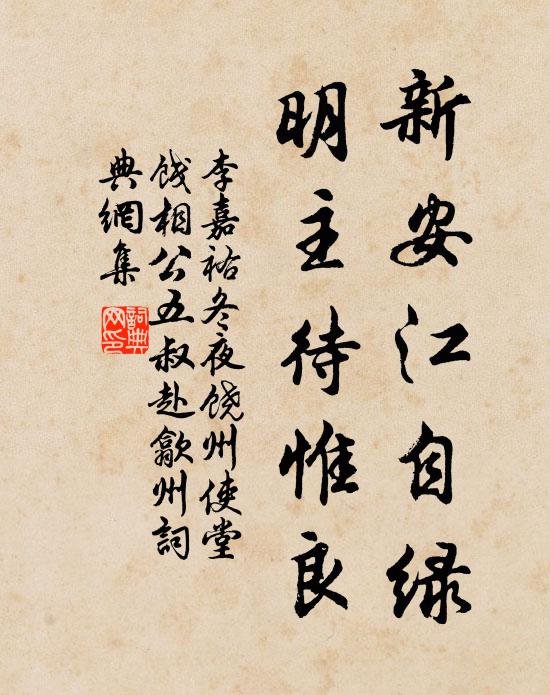 新安江自绿
明主待惟良
李嘉祐冬夜饶州使堂
饯相公五叔赴歙州詞
典網集
詞典网印